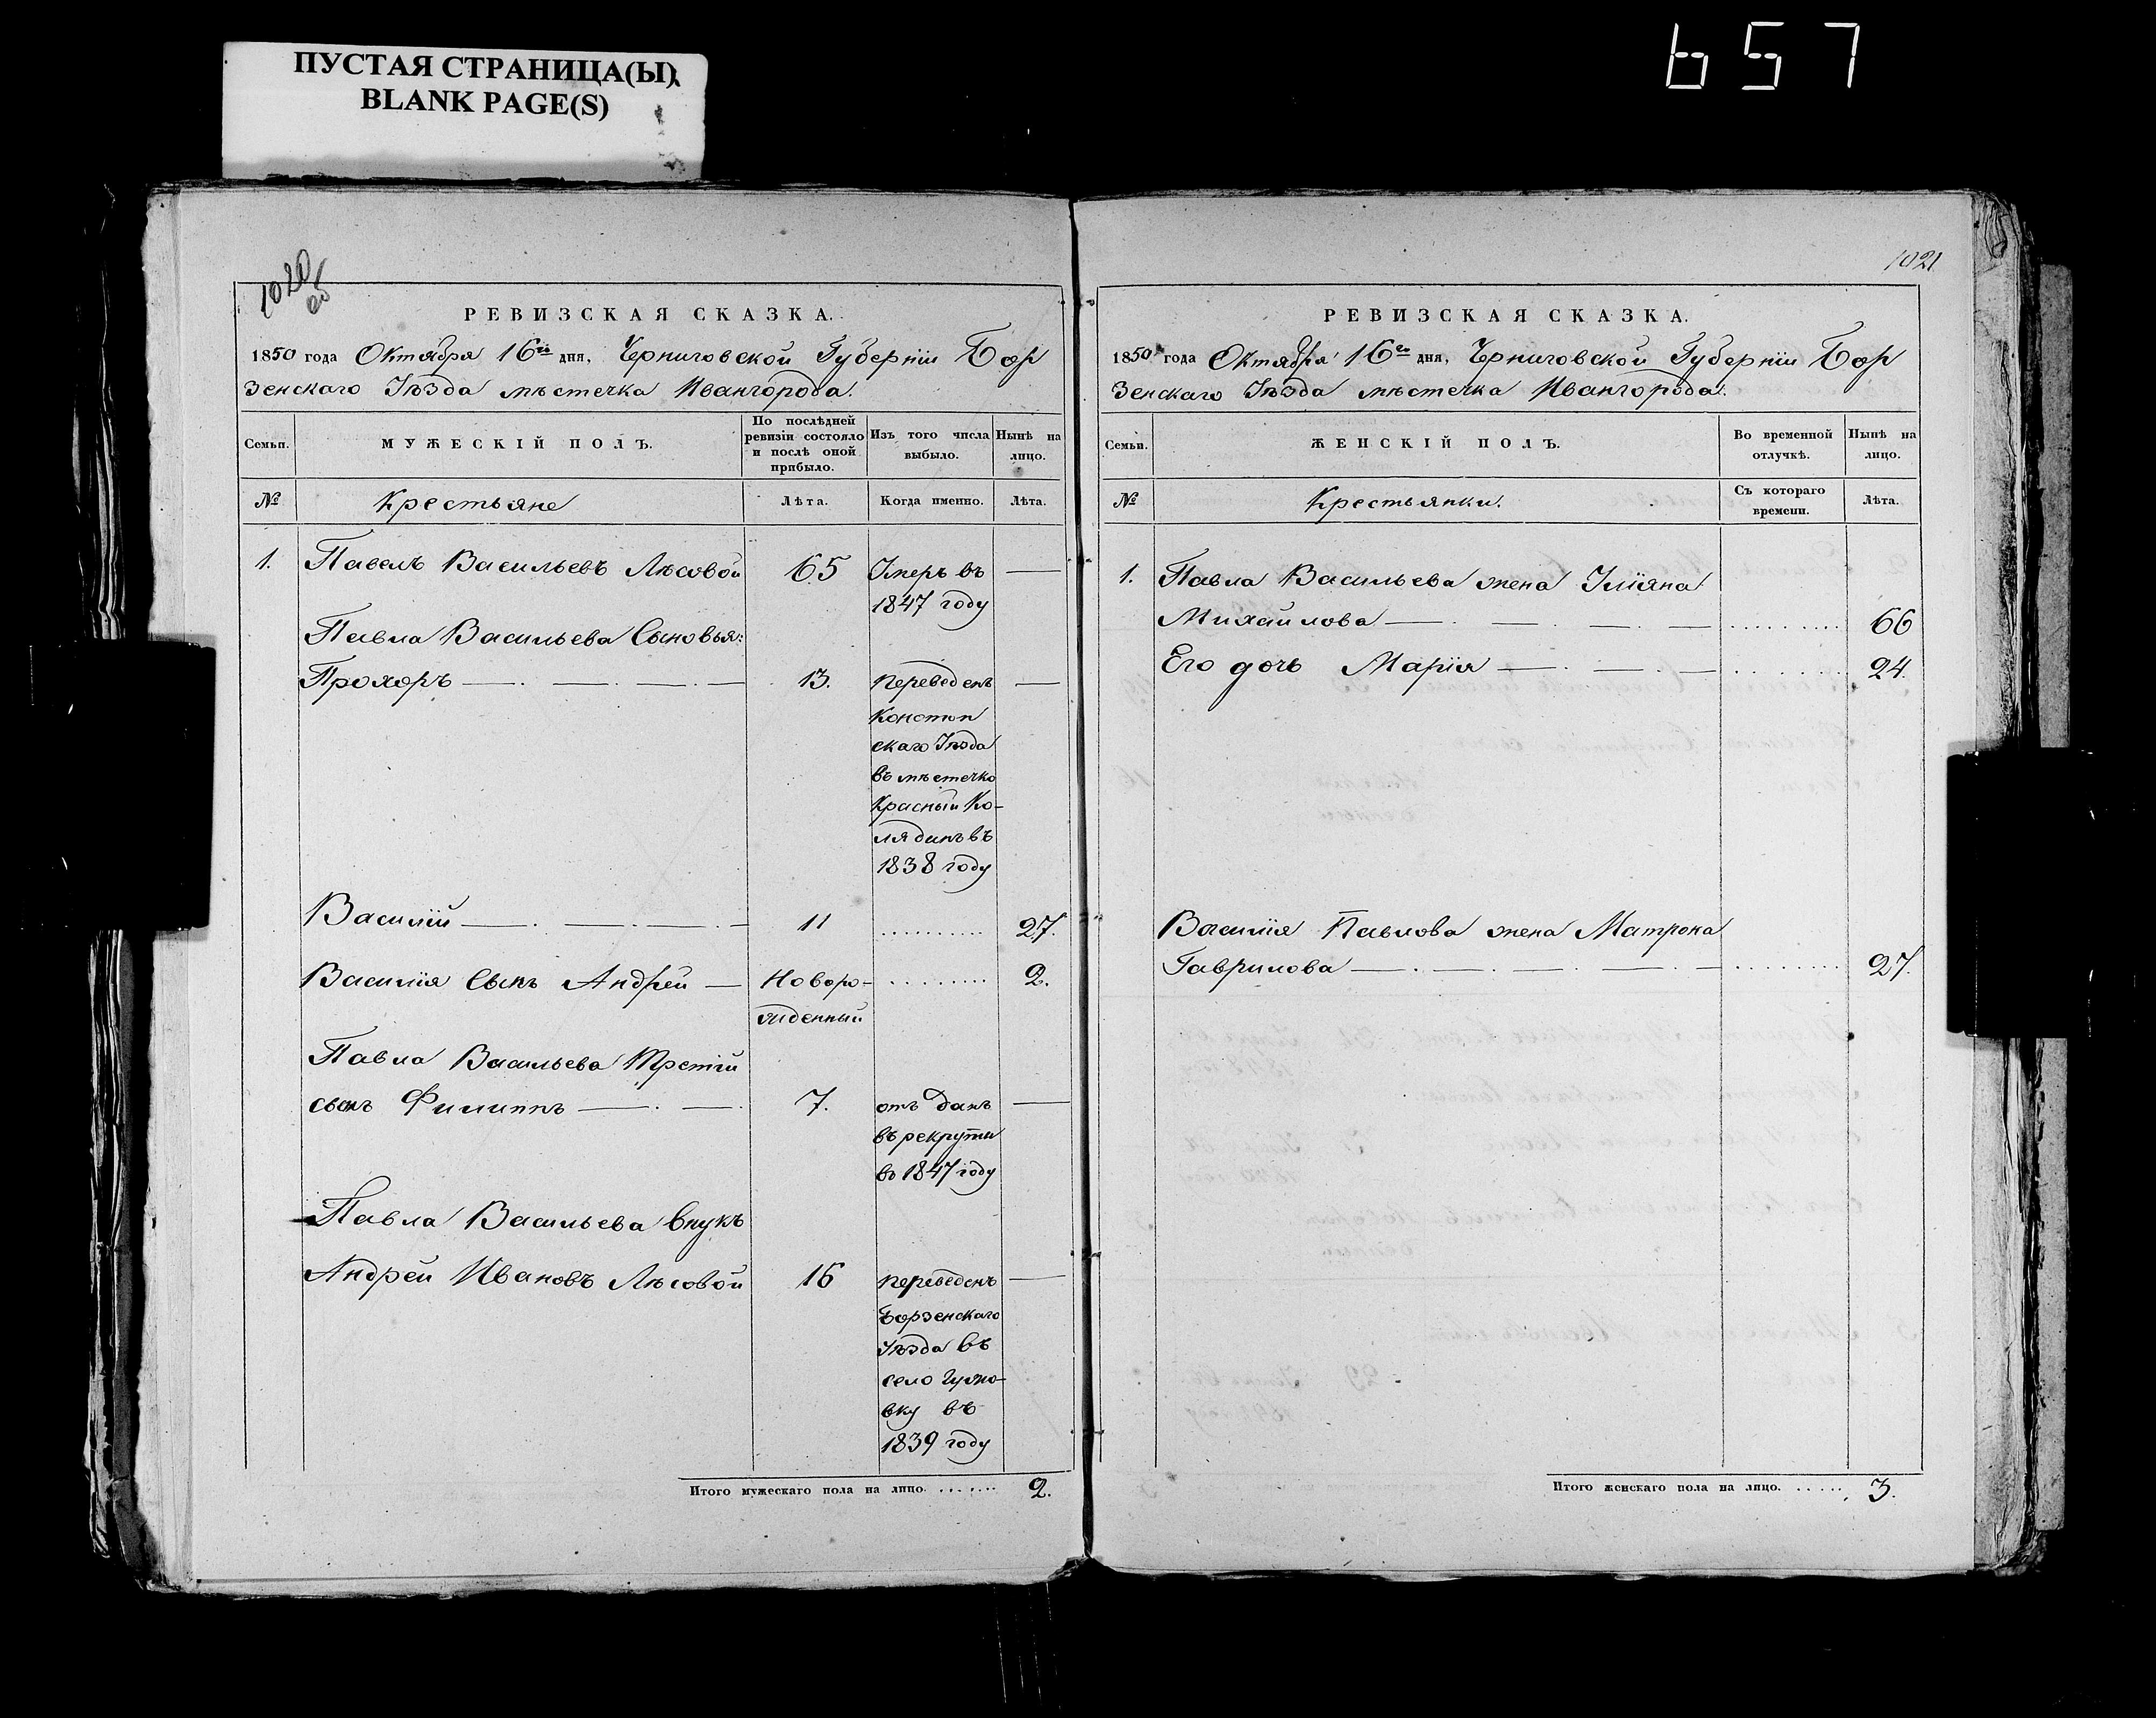 ПУСТАЯ СТРАНИЦА(Ы)
BLANK PAGE(S)
657
1020
об
РЕВИЗСКАЯ СКАЗКА.
1850 года Октября 16го дня, Черниговской Губерніи Бор
зенскаго Уѣзда мѣстечка Ивангорода.
Семьи.
МУЖЕСКІЙ ПОЛЪ.
По послѣдней
ревизіи состояло
и послѣ оной
прибыло.
Изъ того числа
выбыло.
Нынѣ на
лицо.
№
Крестьяне
Лѣта.
Когда именно.
Лѣта.
1. Павелъ Васильевъ Лѣсовой 65 Умеръ въ —
1847 году
Павла Васильева Сыновья:
Прохоръ — 13. переведенъ —
Конотоп
скаго Уѣзда
въ мѣстечко
Красный Ко-
лядинъ въ
1838 году
Василій — 11 .......... 27.
Василія Сынъ Андрей — Новоро- ......... 2.
жденный
Павла Васильева Третій
сынъ Филиппъ — 7. отъ данъ —
въ рекруты
въ 1847 году
Павла Васильева Внукъ
Андрей Ивановъ Лѣсовой 16 переведенъ —
Борзенскаго
Уѣзда въ
село Гужо-
вку въ
1839 году
Итого мужескаго пола на лицо. ....... 2.
1021
РЕВИЗСКАЯ СКАЗКА.
1850 года Октября 16го дня, Черниговской Губерніи Бор
зенскаго Уѣзда мѣстечка Ивангорода.
Семьи.
ЖЕНСКІЙ ПОЛЪ.
Во временной
отлучкѣ.
Нынѣ на
лицо.
№
Крестьянки.
Съ котораго
времени.
Лѣта.
1. Павла Васильева жена Уліяна
Михайлова — ......... 66
Его дочь Марія — ......... 24.
Василія Павлова жена Матрона
Гаврилова — ......... 27.
Итого женскаго пола на лицо. ...... 3.